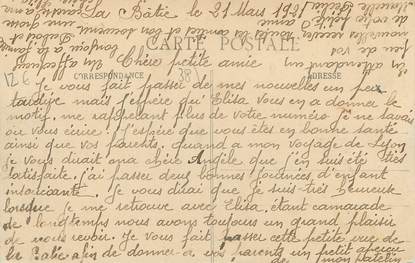 La Bâtie le 21 Mars 1921
CARTE POSTALE
CORRESPONDANCE
ADRESSE
126
38
Chère petite amie
Je vous fait passer de mes nouvelles un peu
tardive mais j'espère qu'Elisa vous en a donner le
motif, me rappelant plus de votre numéro je ne savais
ou vous écrire. J'espère que vous êtes en bonne santé
ainsi que vos parents, quand a mon voyage de Lyon
je vous dirait ma chère Angèle que j'en suis été très
satisfaite, j'ai passer deux bonnes journées d'enfant
insouciante. je vous dirai que je suis très heureuse
lorsque je me retrouve avec Elisa, étant camarade
de longtemps nous avons toujours un grand plaisir
de nous revoir. Je vous fait passer cette petite vue de
la Bâtie afin de donner a vos parents un petit aperçu
de mon patelin